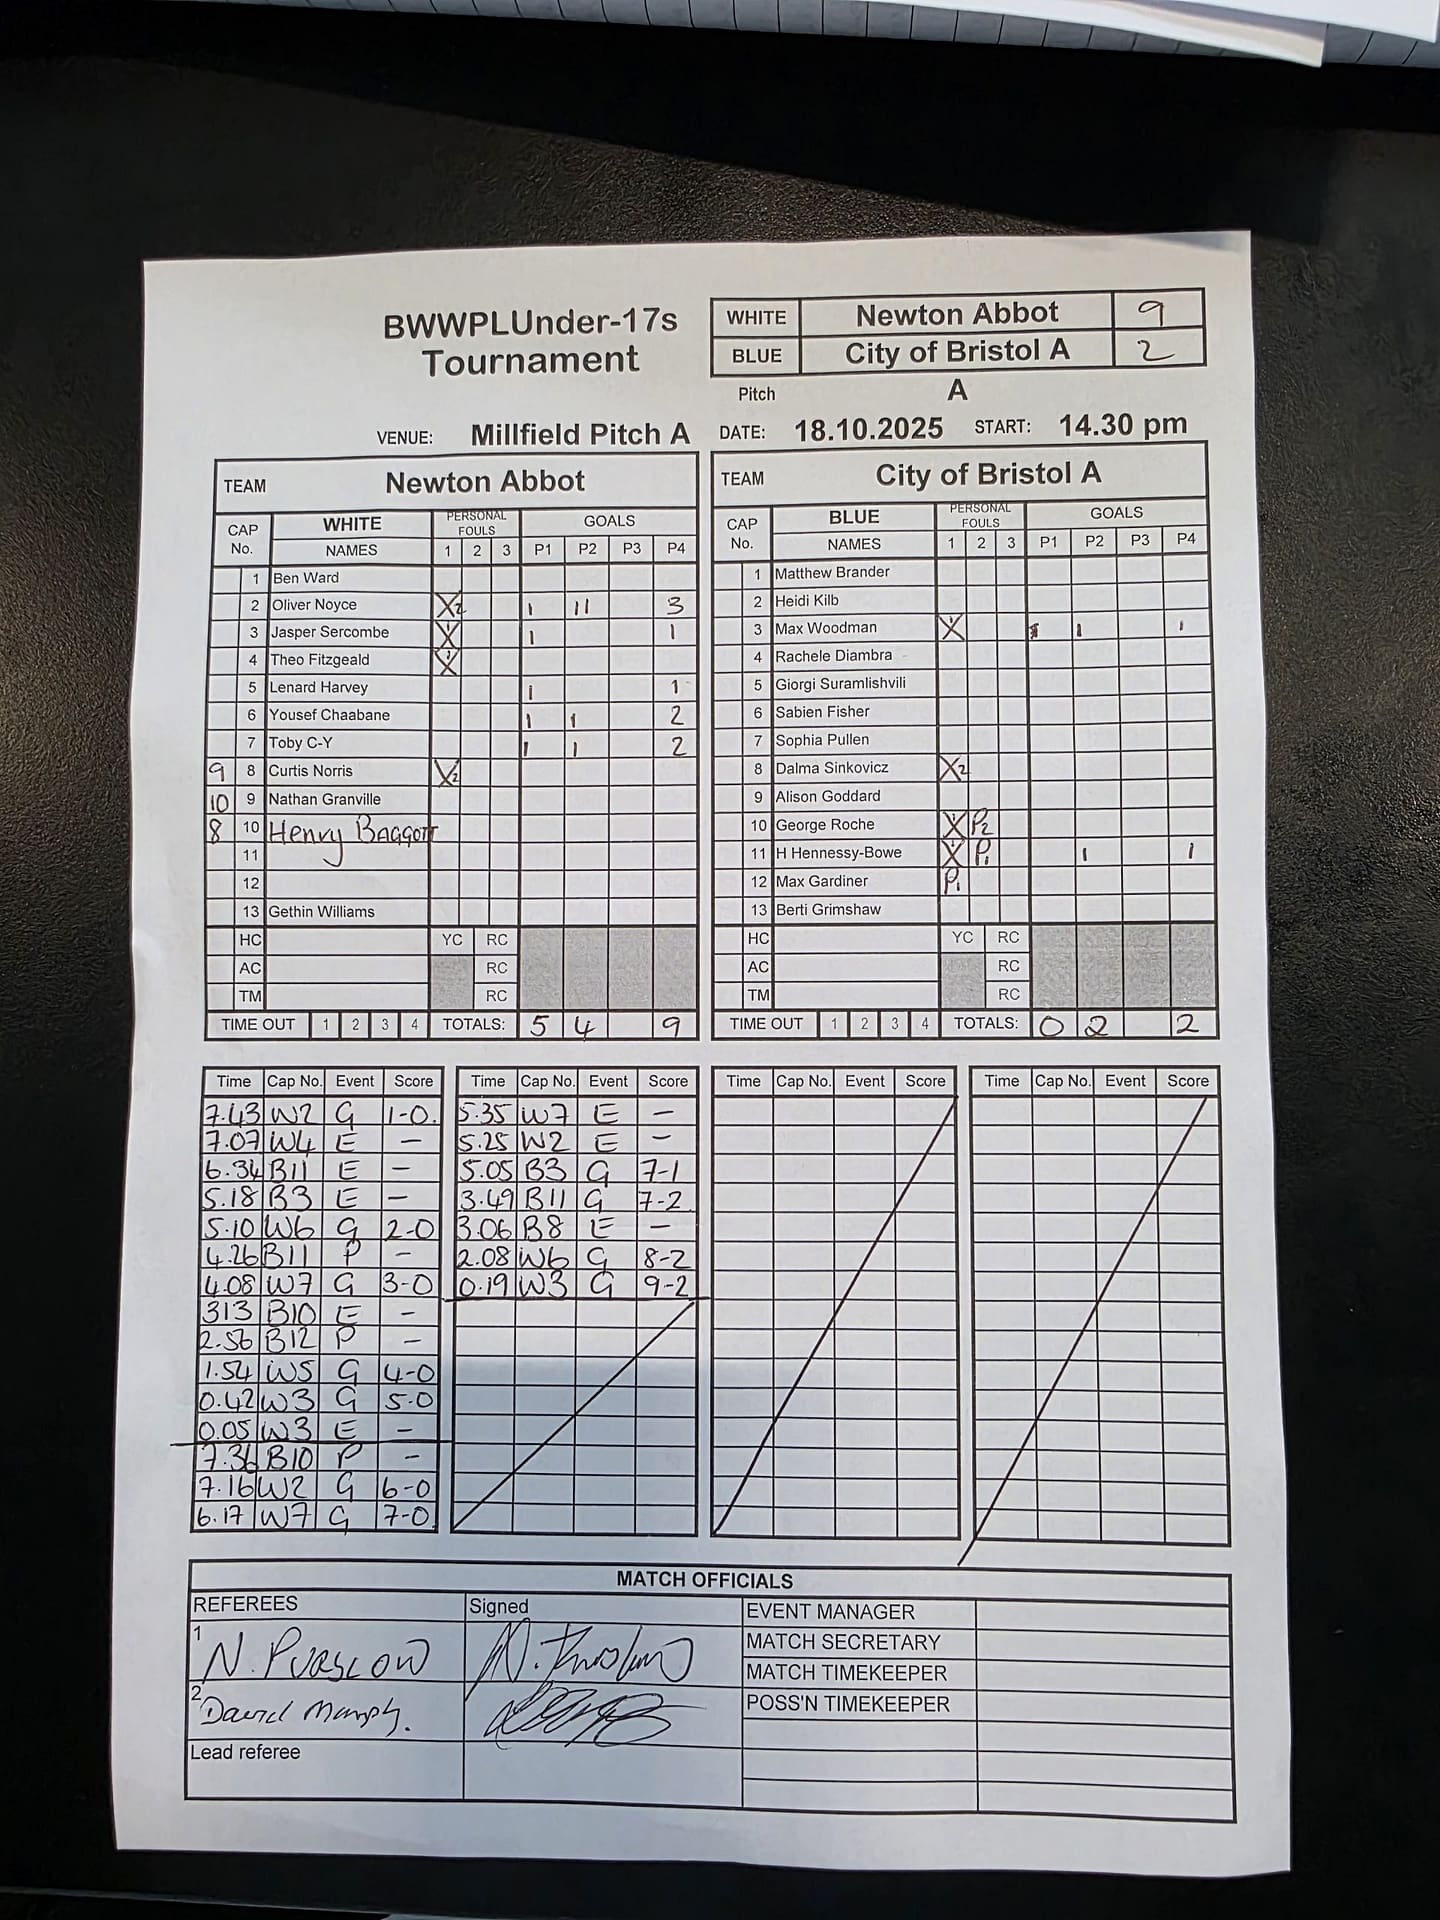 BWWPLUnder-17s
Tournament
WHITE Newton Abbot 9
BLUE City of Bristol A 2
Pitch A
VENUE: Millfield Pitch A DATE: 18.10.2025 START: 14.30 pm
TEAM Newton Abbot
CAP No. WHITE PERSONAL FOULS GOALS
NAMES 1 2 3 P1 P2 P3 P4
1 Ben Ward
2 Oliver Noyce X2 1 11 3
3 Jasper Sercombe X 1 1
4 Theo Fitzgeald X
5 Lenard Harvey 1 1
6 Yousef Chaabane 1 1 2
7 Toby C-Y 1 1 2
9 8 Curtis Norris X2
10 9 Nathan Granville
8 10 Henry Baggott
11
12
13 Gethin Williams
HC YC RC
AC RC
TM RC
TIME OUT 1 2 3 4 TOTALS: 5 4 9
TEAM City of Bristol A
CAP No. BLUE PERSONAL FOULS GOALS
NAMES 1 2 3 P1 P2 P3 P4
1 Matthew Brander
2 Heidi Kilb
3 Max Woodman X 1 1
4 Rachele Diambra
5 Giorgi Suramlishvili
6 Sabien Fisher
7 Sophia Pullen
8 Dalma Sinkovicz X2
9 Alison Goddard
10 George Roche X P2
11 H Hennessy-Bowe X P1 1 1
12 Max Gardiner P1
13 Berti Grimshaw
HC YC RC
AC RC
TM RC
TIME OUT 1 2 3 4 TOTALS: 0 2 2
Time Cap No. Event Score
7.43 W2 G 1-0
7.07 W4 E -
6.34 B11 E -
5.18 B3 E -
5.10 W6 G 2-0
4.26 B11 P -
4.08 W7 G 3-0
313 B10 E -
2.56 B12 P -
1.54 W5 G 4-0
0.42 W3 G 5-0
0.05 W3 E -
7.36 B10 P -
7.16 W2 G 6-0
6.17 W7 G 7-0
Time Cap No. Event Score
5.35 W7 E -
5.25 W2 E -
5.05 B3 G 7-1
3.49 B11 G 7-2
3.06 B8 E -
2.08 W6 G 8-2
0.19 W3 G 9-2
Time Cap No. Event Score
Time Cap No. Event Score
MATCH OFFICIALS
REFEREES Signed
1 N. Purslow
2 David
Lead referee
EVENT MANAGER
MATCH SECRETARY
MATCH TIMEKEEPER
POSS'N TIMEKEEPER